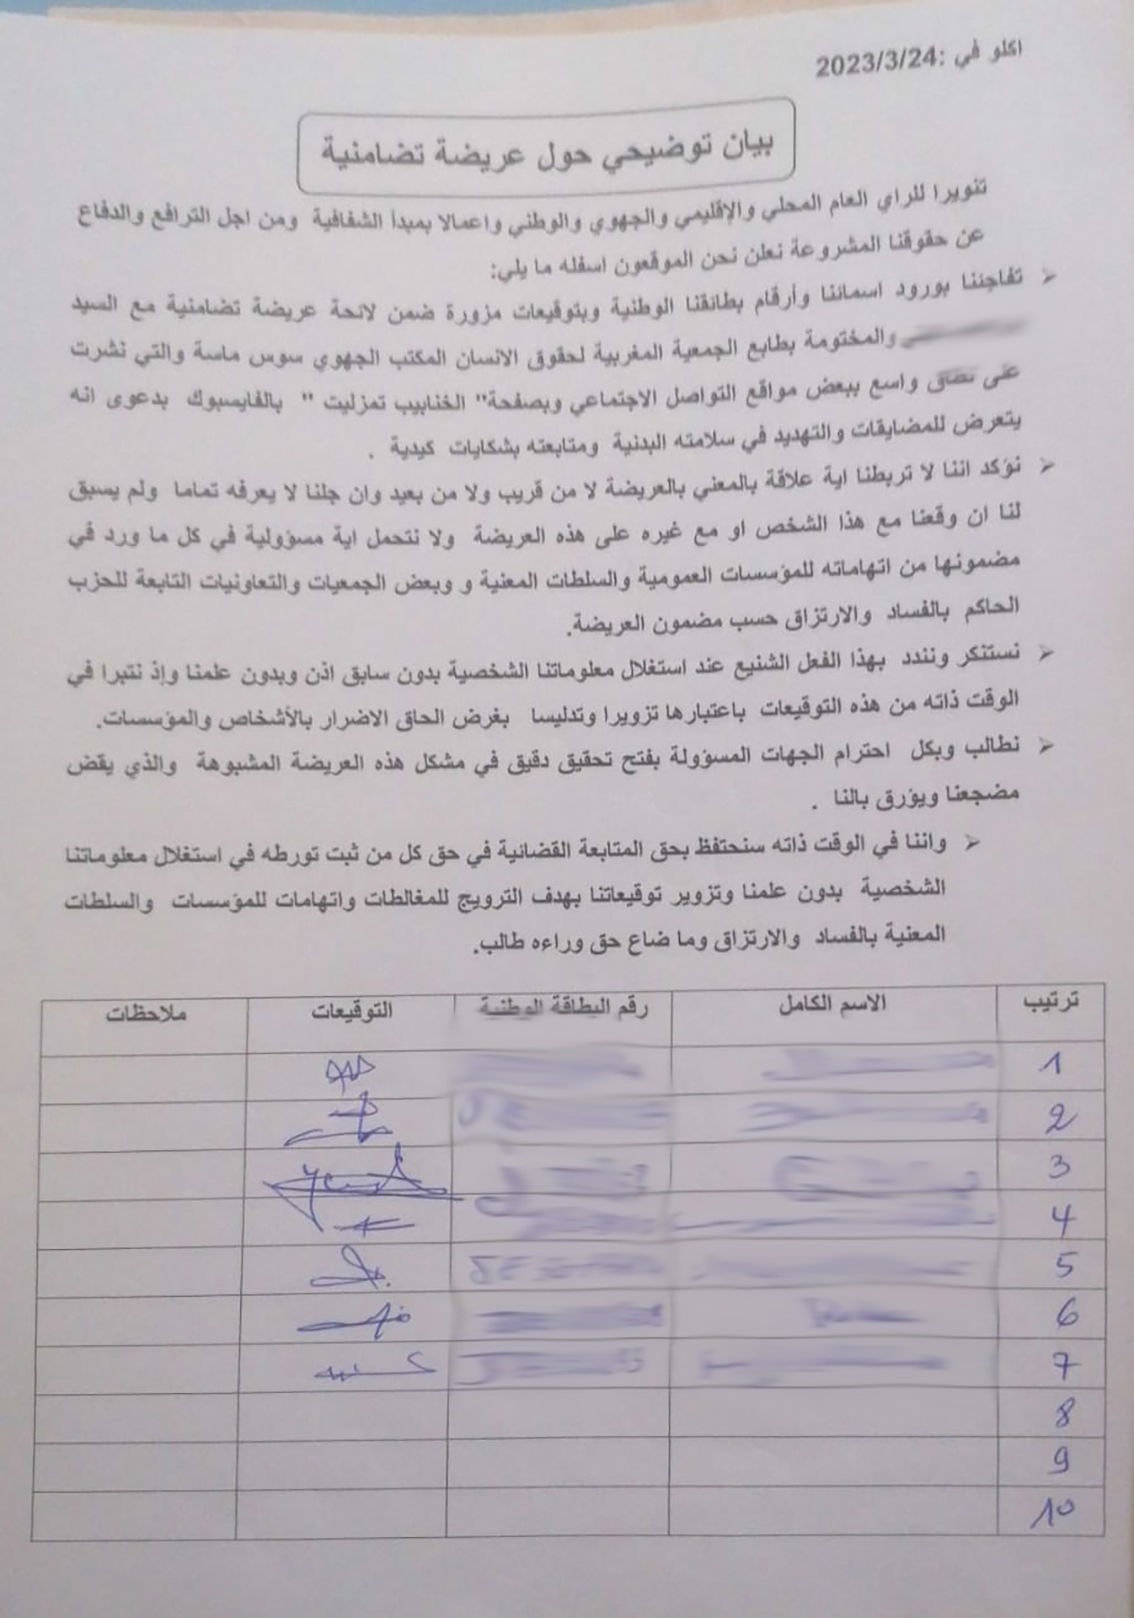 اكلو في :2023/3/24
بيان توضيحي حول عريضة تضامنية
تنويرا للراي العام المحلي والإقليمي والجهوي والوطني واعمالا بمبدأ الشفافية ومن اجل الترافع والدفاع
عن حقوقنا المشروعة نعلن نحن الموقعون اسفله ما يلي:
➢ تفاجئنا بورود اسمائنا وأرقام بطائقنا الوطنية وبتوقيعات مزورة ضمن لائحة عريضة تضامنية مع السيد
والمختومة بطابع الجمعية المغربية لحقوق الانسان المكتب الجهوي سوس ماسة والتي نشرت
على نطاق واسع ببعض مواقع التواصل الاجتماعي وبصفحة" الخنابيب تمزليت " بالفايسبوك بدعوى انه
يتعرض للمضايقات والتهديد في سلامته البدنية ومتابعته بشكايات كيدية .
➢ نؤكد اننا لا تربطنا اية علاقة بالمعني بالعريضة لا من قريب ولا من بعيد وان جلنا لا يعرفه تماما ولم يسبق
لنا ان وقعنا مع هذا الشخص او مع غيره على هذه العريضة ولا نتحمل اية مسؤولية في كل ما ورد في
مضمونها من اتهاماته للمؤسسات العمومية والسلطات المعنية و وبعض الجمعيات والتعاونيات التابعة للحزب
الحاكم بالفساد والارتزاق حسب مضمون العريضة.
➢ نستنكر ونندد بهذا الفعل الشنيع عند استغلال معلوماتنا الشخصية بدون سابق اذن وبدون علمنا وإذ نتبرا في
الوقت ذاته من هذه التوقيعات باعتبارها تزويرا وتدليسا بغرض الحاق الاضرار بالأشخاص والمؤسسات.
➢ نطالب وبكل احترام الجهات المسؤولة بفتح تحقيق دقيق في مشكل هذه العريضة المشبوهة والذي يقض
مضجعنا ويؤرق بالنا .
➢ واننا في الوقت ذاته سنحتفظ بحق المتابعة القضائية في حق كل من ثبت تورطه في استغلال معلوماتنا
الشخصية بدون علمنا وتزوير توقيعاتنا بهدف الترويج للمغالطات واتهامات للمؤسسات والسلطات
المعنية بالفساد والارتزاق وما ضاع حق وراءه طالب.
ترتيب الاسم الكامل رقم البطاقة الوطنية التوقيعات ملاحظات
1
2
3
4
5
6
7
8
9
10